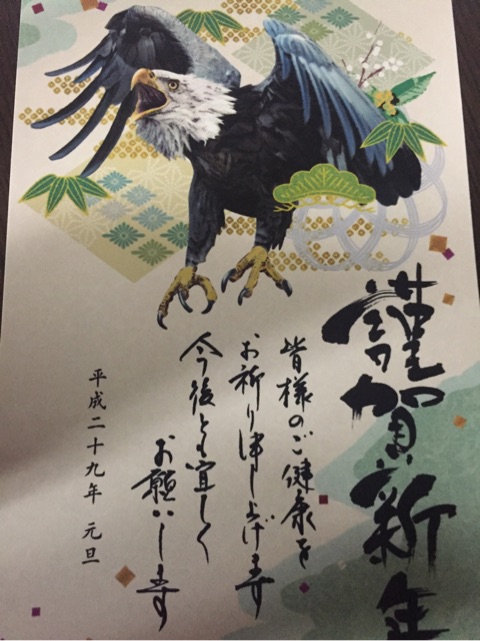 謹賀新年
皆様のご健康を
お祈り申し上げます
今後とも宜しく
お願いします
平成二十九年 元旦